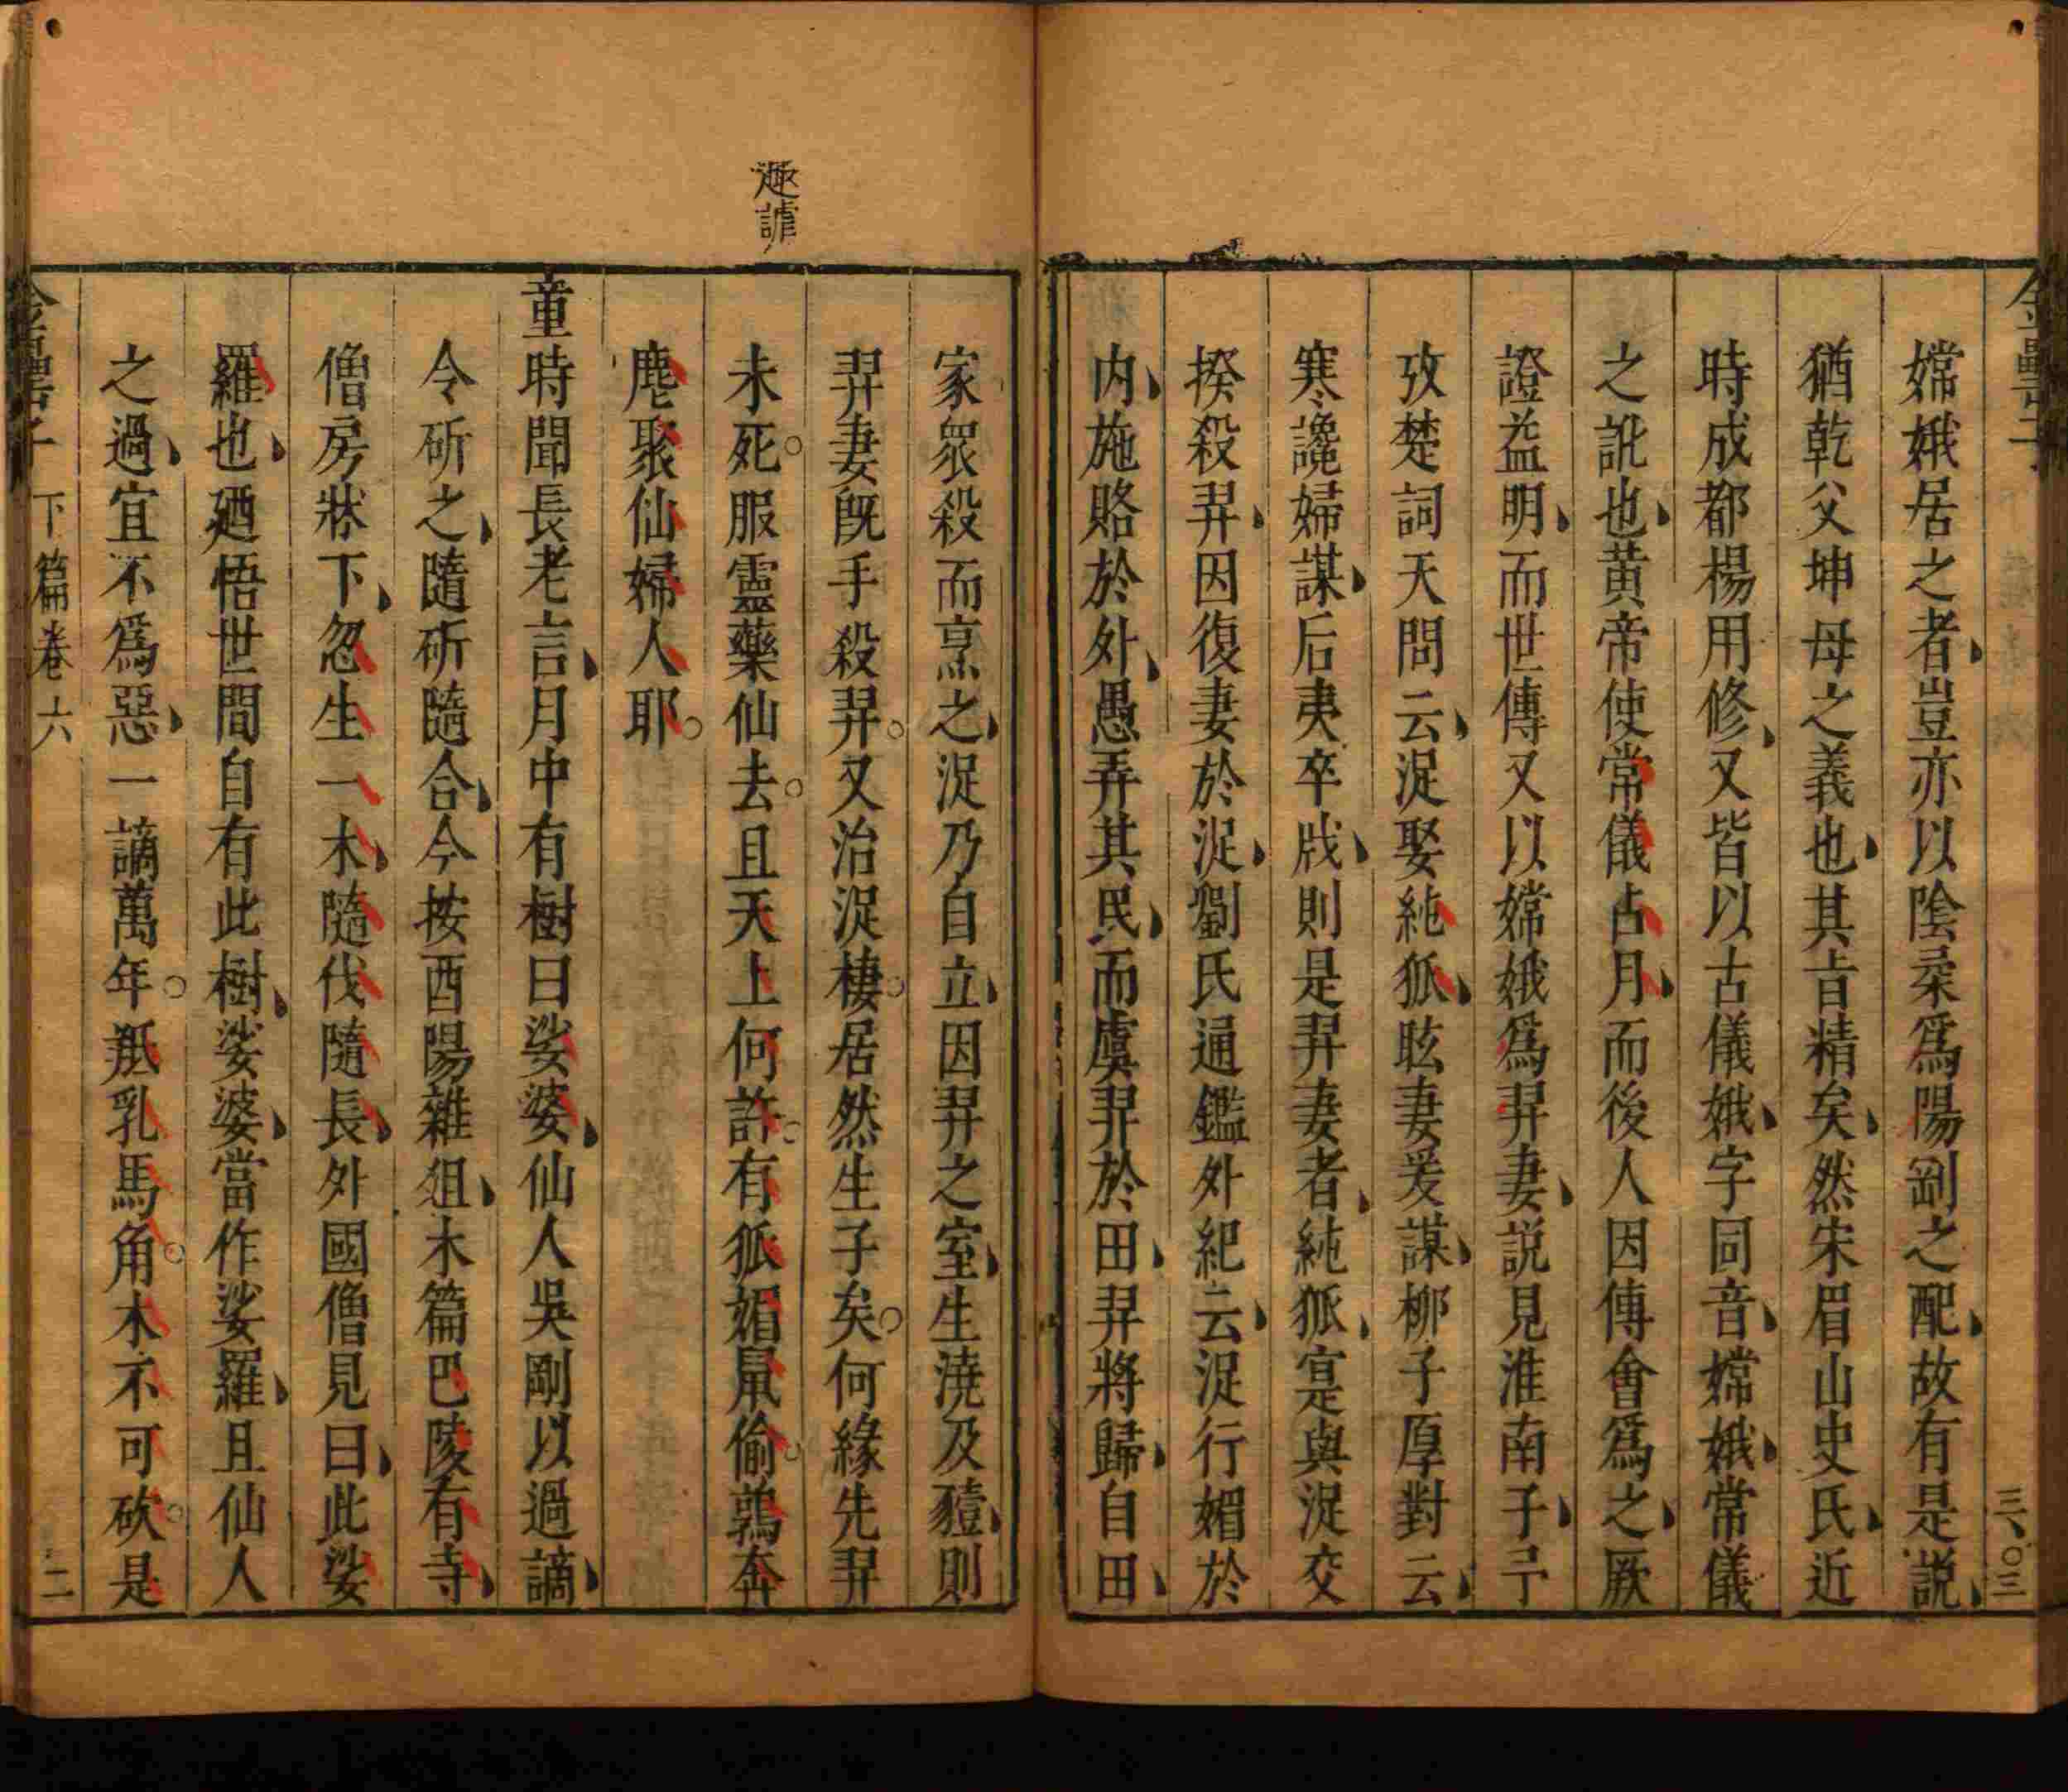 嫦娥居之者豈亦以陰柔爲陽剛之配故有是説
猶乾父坤母之義也其旨精矣然宋眉山史氏近
時成都楊用修又皆以古儀娥字同音嫦娥常儀
之訛也黄帝使常儀占月而後人因傳會爲之厥
證益明而世傳又以嫦娥爲羿妻説見淮南子予
攷楚詞天問云浞娶純狐眩妻爰謀柳子厚對云
寒讒婦謀后夷卒戕則是羿妻者純狐寔與浞交
揆殺羿因復妻於浞劉氏通鑑外紀云浞行媚於
内施賂於外愚弄其民而虞羿於田羿將歸自田
家衆殺而烹之浞乃自立因羿之室生澆及豷則
羿妻旣手殺羿又治浞棲居然生子矣何緣先羿
未死服靈藥仙去且天上何許有狐媚鼠偷鶉奔
麀聚仙婦人耶
童時聞長老言月中有樹曰娑婆仙人吳剛以過謫
令斫之隨斫隨合今按酉陽雜俎木篇巴陵有寺
僧房牀下忽生一木隨伐隨長外國僧見曰此娑
羅也廼悟世間自有此樹娑婆當作娑羅且仙人
之過宜不爲惡一謫萬年羝乳馬角木不可砍是
下篇卷六
二
三〇三
謔